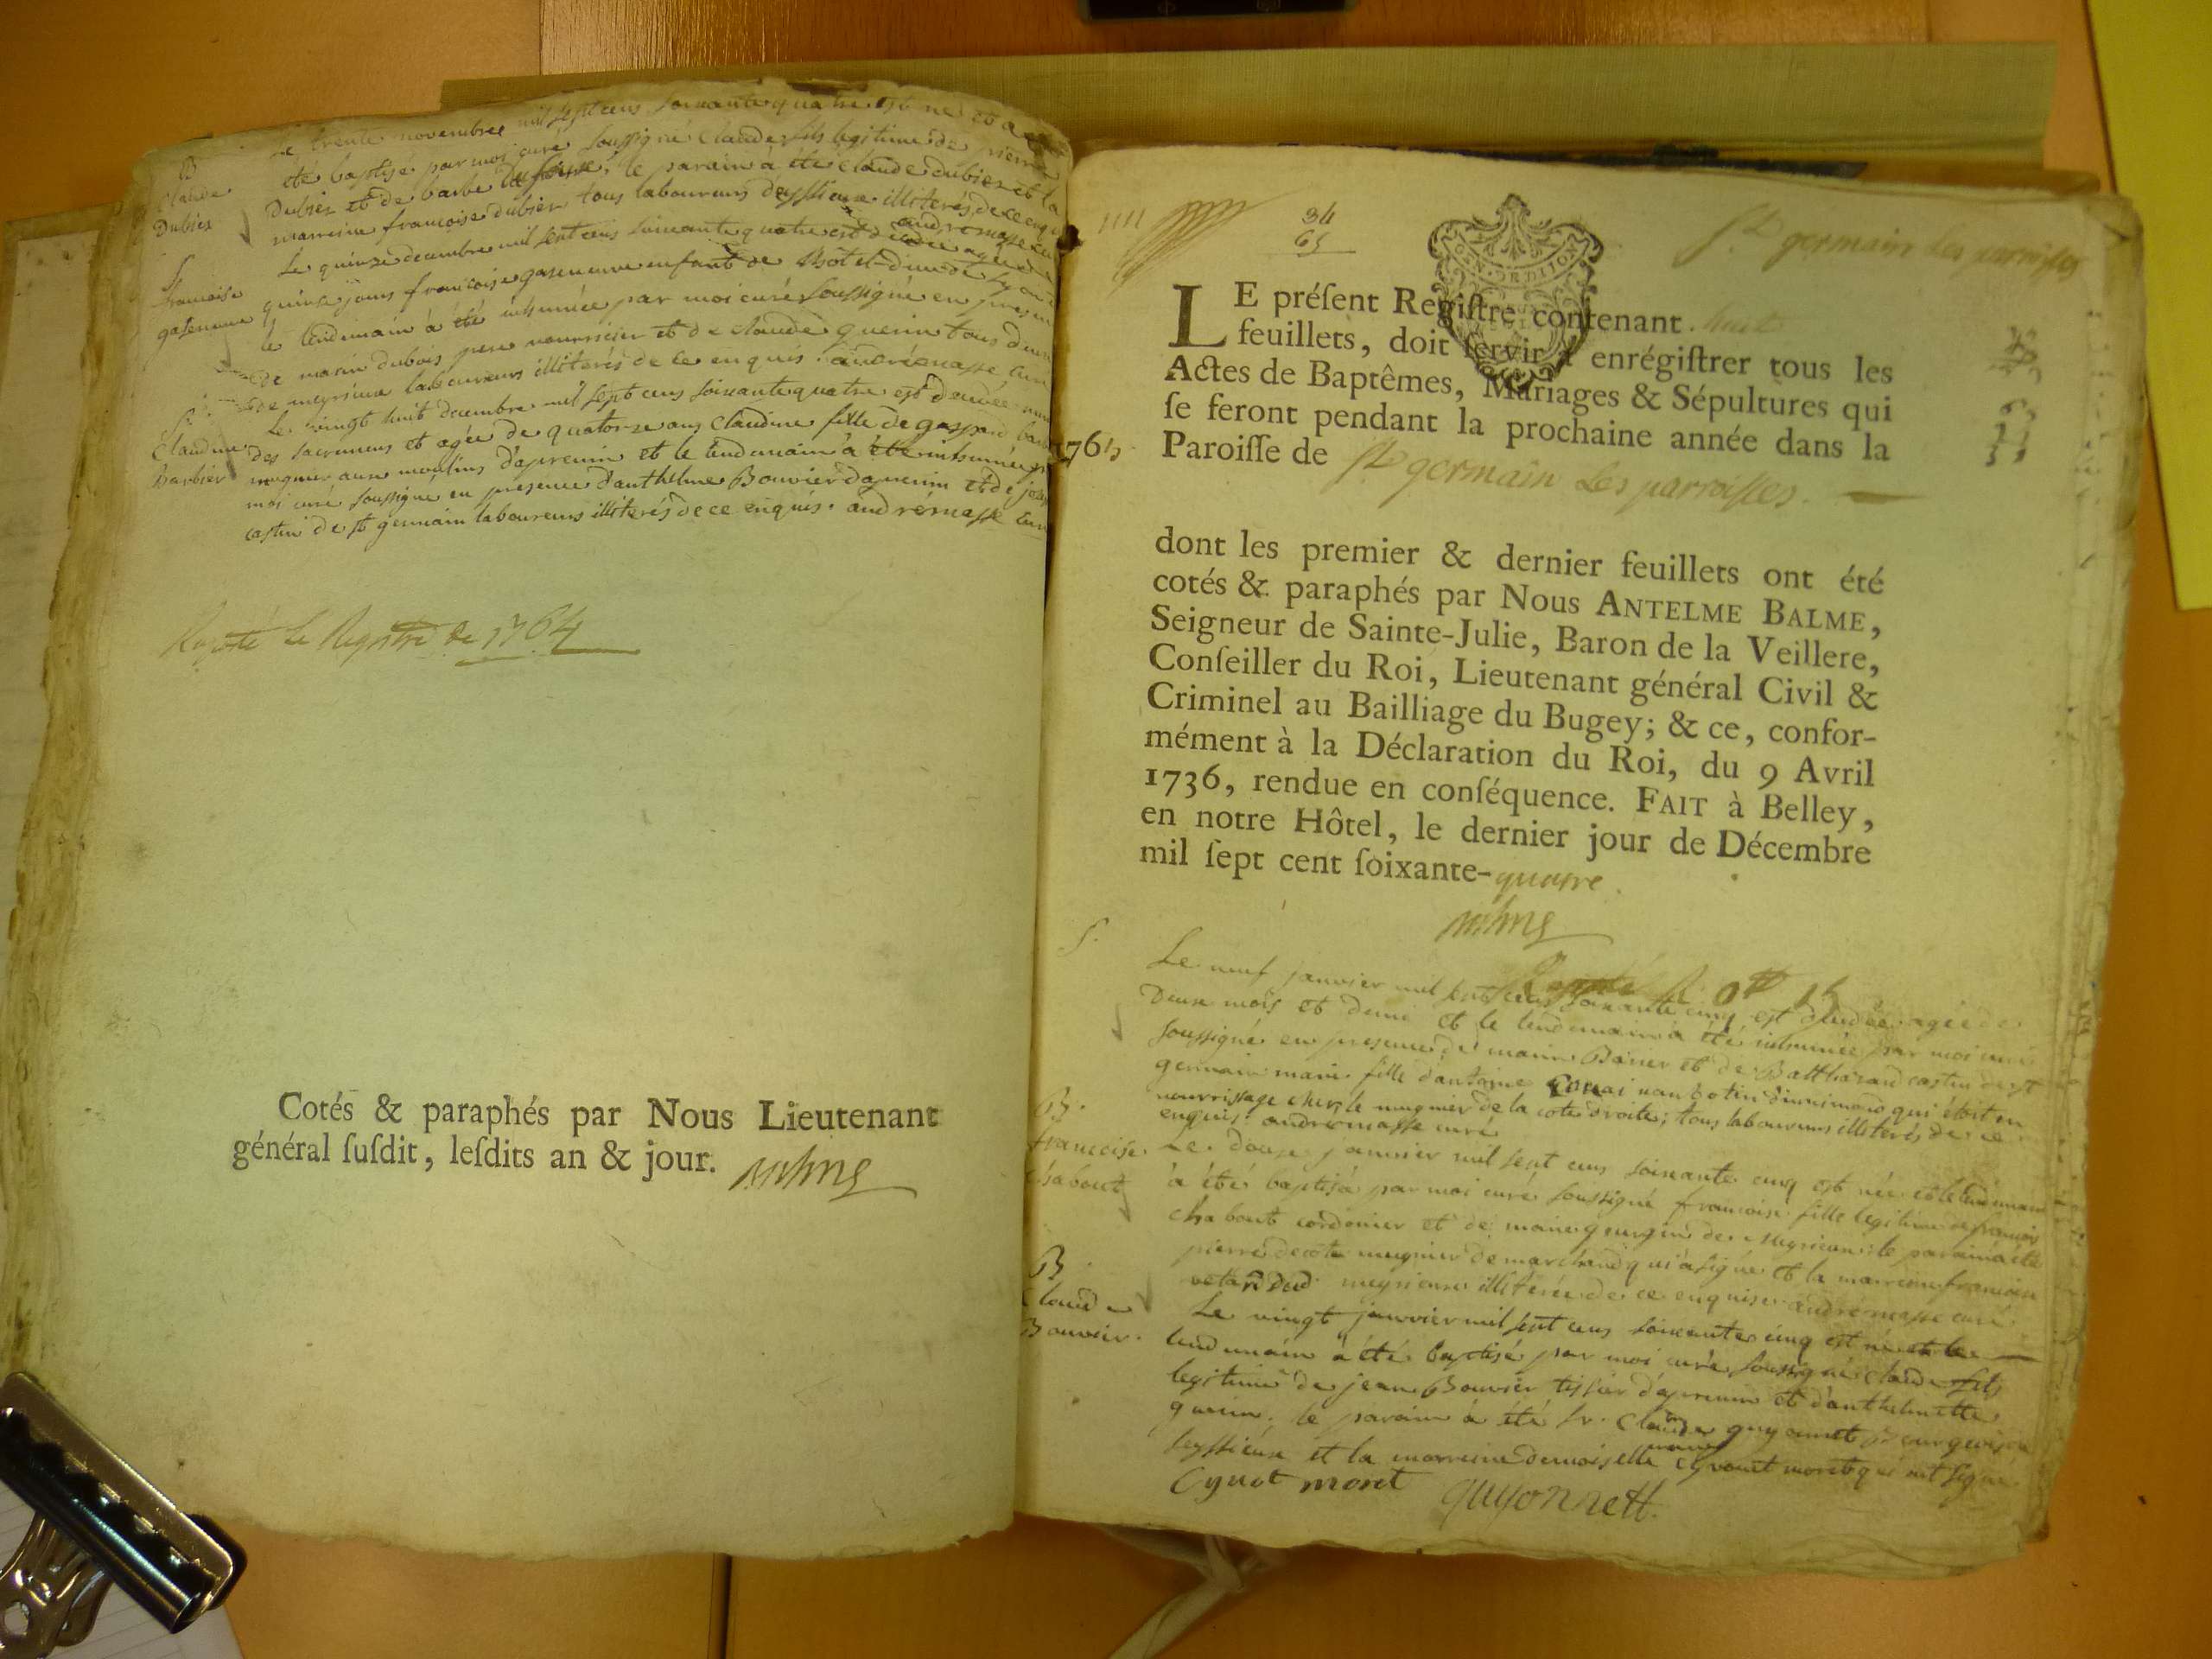 Le trente novembre mil sept cens soixante quatre est né et a
B
Claude
Dubier
été baptisé par moi curé soussigné Claude fils legitime de pierre
Dubier et de barbe le parain à été claude dubier et la
marreine francoise dubier tous laboureurs illiterés de ce enquis
andré masse curé
S
francoise
gaseneuve
Le quinze decembre mil sept cens soixante quatre est décédée agée de
quinze jours francoise gaseneuve enfant de l'hôtel-dieu de lyon
le lendemain à été inhumée par moi curé soussigné en presence
de marin dubois pere nourricier et de claude guerin tous deux
de meyrieux laboureurs illiterés de ce enquis. andré masse curé
S.
Claudine
Barbier
Le vingt huit decembre mil sept cens soixante quatre est decedée munie
des sacremens et agée de quatorze ans Claudine fille de gaspard barbier
mugnier aux moulins d'apremin et le lendemain à été inhumée par
moi curé soussigné en présence d'anthelme Bouvier d'apremin et de
castin de st germain laboureurs illiterés de ce enquis. andré masse curé
le Registre de 1764
Cotés & paraphés par Nous Lieutenant
général ſuſdit, leſdits an & jour.
34
65
GEN. DE DIJON
St germain les parroisses
LE préſent Regiſtre contenant huit
feuillets, doit ſervir à enrégiſtrer tous les
Actes de Baptêmes, Mariages & Sépultures qui
ſe feront pendant la prochaine année dans la
1765
Paroiſſe de St germain Les parroisses.
dont les premier & dernier feuillets ont été
cotés & paraphés par Nous ANTELME BALME,
Seigneur de Sainte-Julie, Baron de la Veillere,
Conſeiller du Roi, Lieutenant général Civil &
Criminel au Bailliage du Bugey; & ce, confor-
mément à la Déclaration du Roi, du 9 Avril
1736, rendue en conſéquence. FAIT à Belley,
en notre Hôtel, le dernier jour de Décembre
mil ſept cent ſoixante-quatre.
S.
Le neuf janvier mil sept cens soixante cinq est décédée agée de
deux mois et demi et le lendemain à été inhumée par moi curé
soussigné en presence de marin Barier et de Balthazard castin de st
germain marie fille d'antoine qui étoit en
nourrissage chez le mugnier de la cote droite; tous laboureurs illiterés de ce
enquis. andré masse curé
B.
francoise
Chabout
Le douze janvier mil sept cens soixante cinq est née et le lendemain
à été baptisée par moi curé soussigné francoise fille legitime de françois
chabout cordonier et de marie de meyrieux: le parain à été
pierre decote mugnier de marchand qui a signé et la marreine francoise
meyrieux illiterée de ce enquise. andré masse curé
B
Claude
Bouvier.
Le vingt janvier mil sept cens soixante cinq est né et le
lendemain à été baptisé par moi curé soussigné claude fils
legitime de jean Bouvier tissier d'apremin et d'anthelmette
guerin. le parain à été sr. Claude guyonnet Bourgeois
seyssieux et la marreine demoiselle moret qui ont signé
Cynot moret guyonnett.